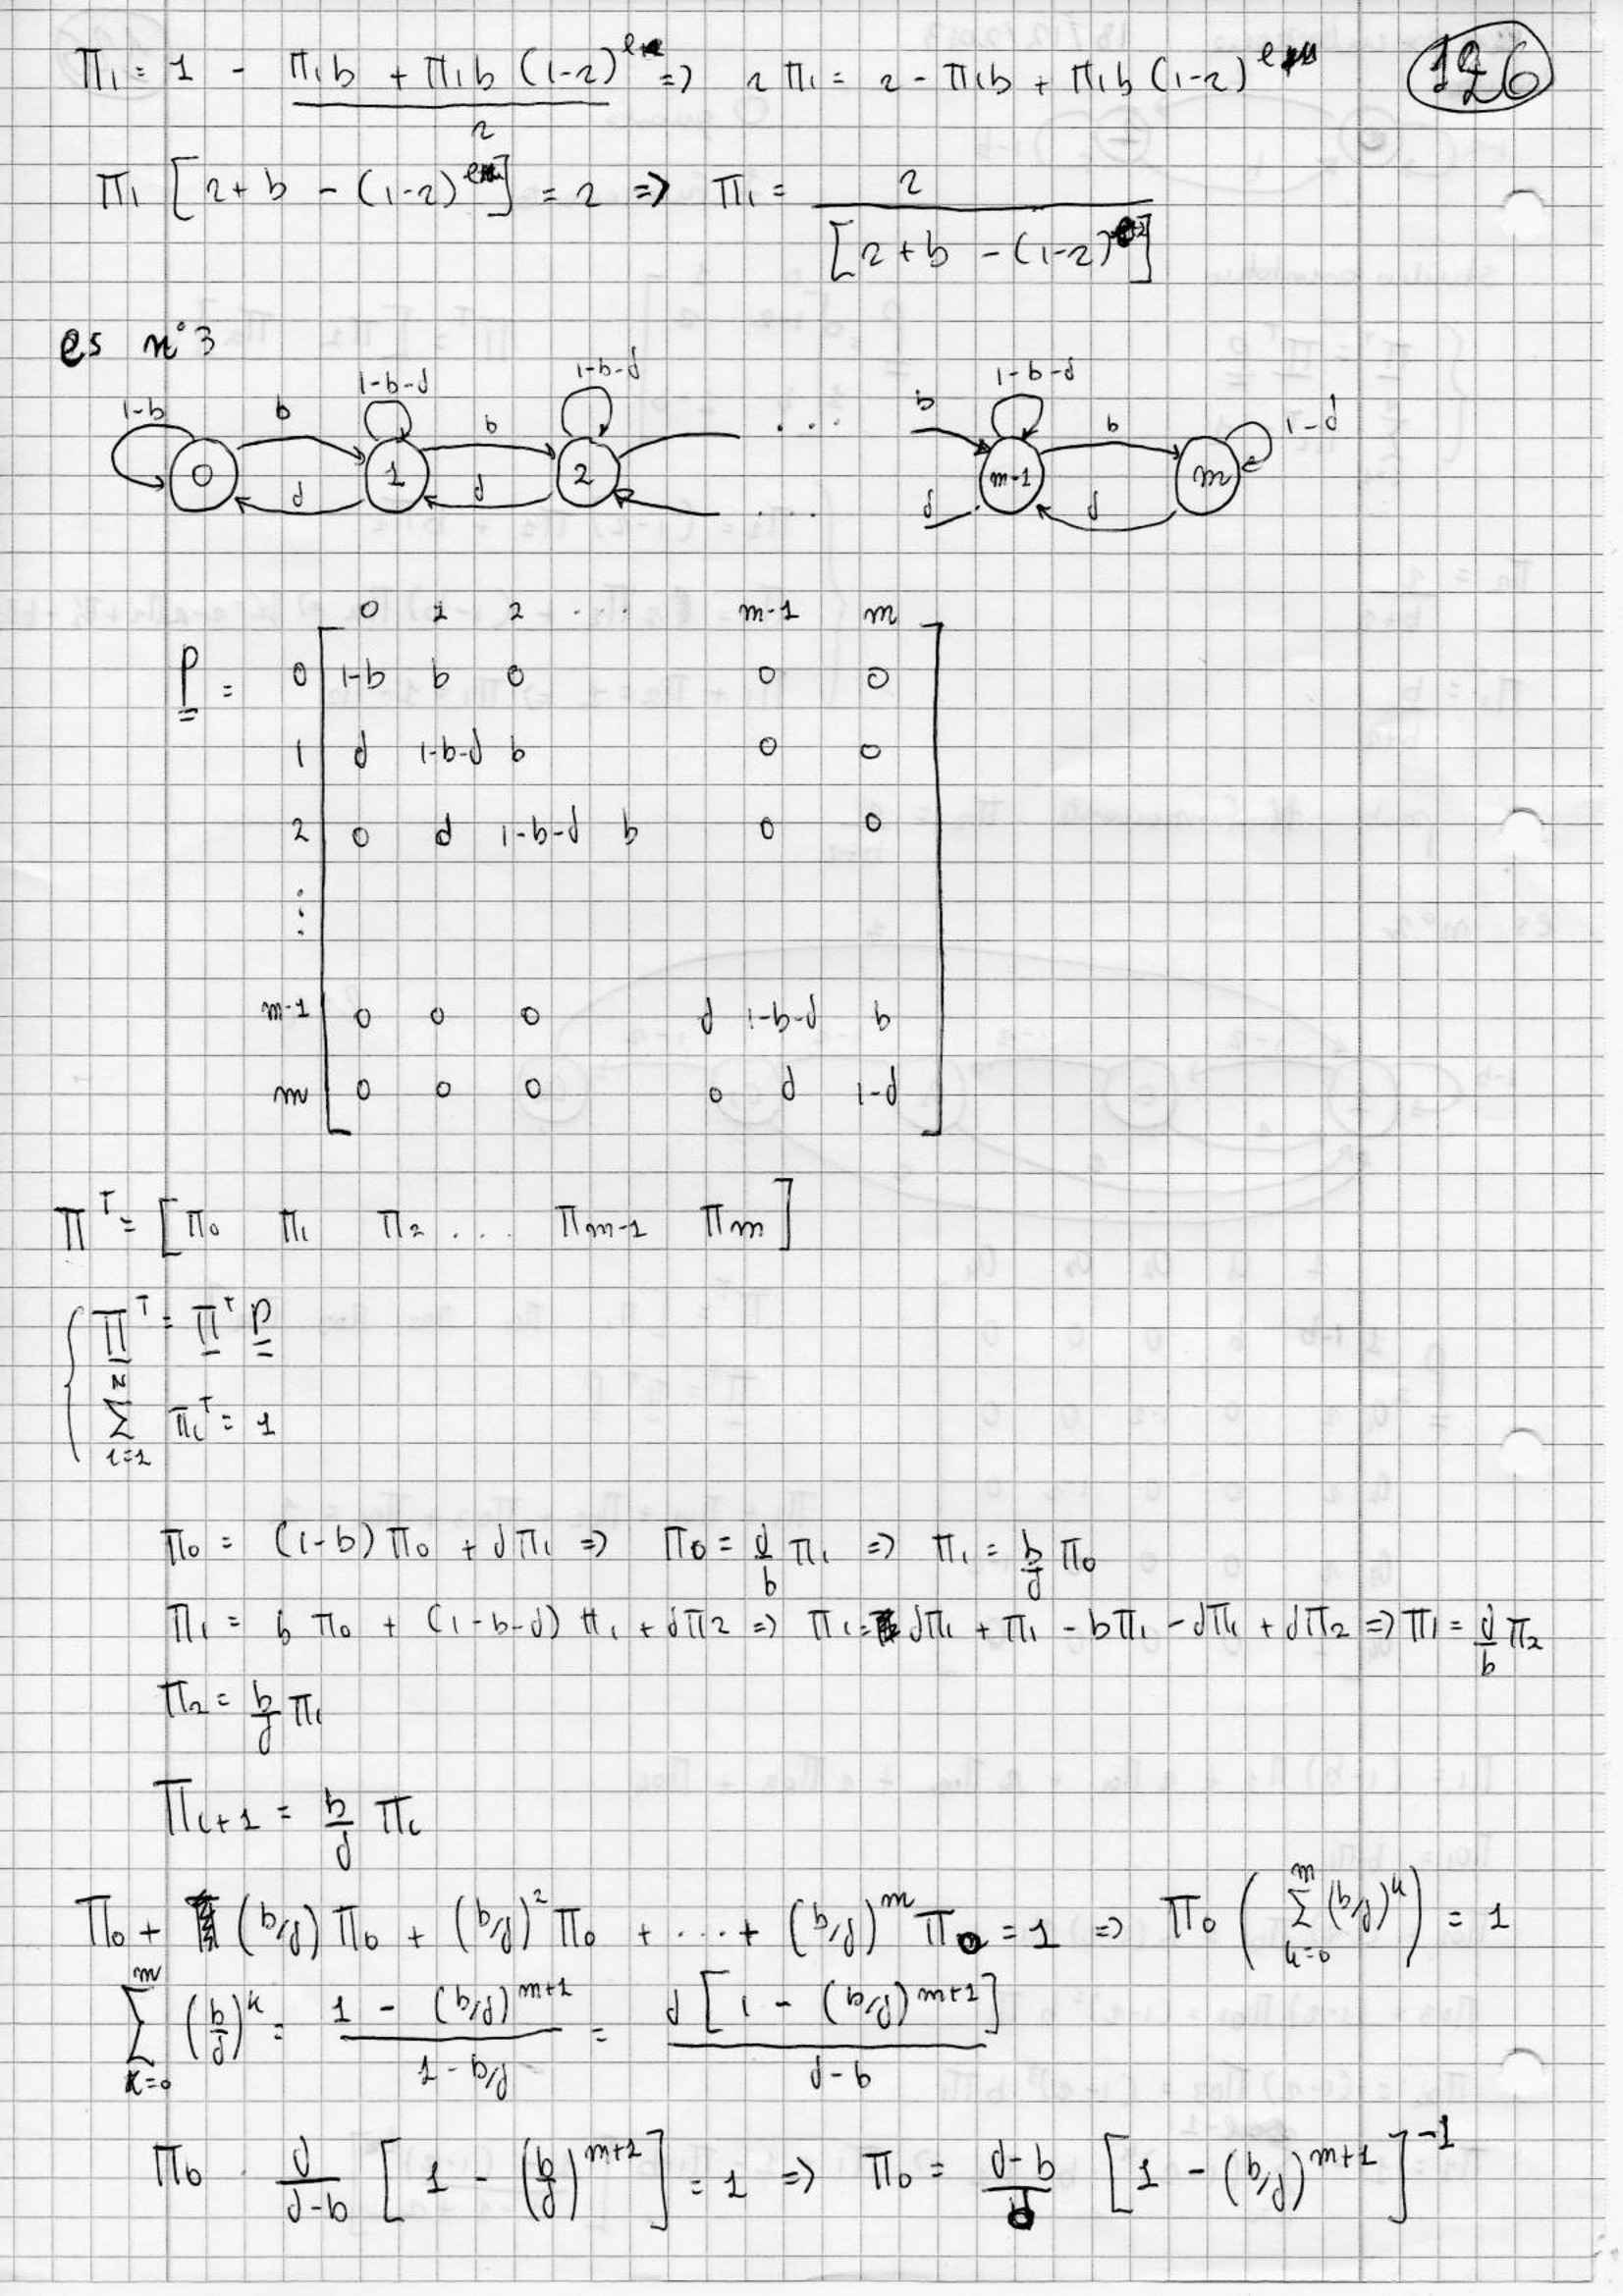 126
Π₁ = 1 - (Π₁b + Π₁b (1-2)^e)/2 => 2Π₁ = 2 - Π₁b + Π₁b (1-2)^e
Π₁ [2+b - (1-2)^e] = 2 => Π₁ = 2/[2+b - (1-2)]
es n°3
1-b b 1-b-d b 1-b-d ... b 1-b-d b 1-d
0 1 2 m-1 m
d d ... d d
0 1 2 ... m-1 m
P = 0 1-b b 0 0 0
1 d 1-b-d b 0 0
2 0 d 1-b-d b 0 0
⋮
m-1 0 0 0 d 1-b-d b
m 0 0 0 0 d 1-d
Π^T = [Π₀ Π₁ Π₂ ... Πm-1 Πm]
Π^T = Π^T P
Σ i=1 Πi^T = 1
Π₀ = (1-b)Π₀ + dΠ₁ => Π₀ = d/b Π₁ => Π₁ = b/d Π₀
Π₁ = b Π₀ + (1-b-d) Π₁ + dΠ2 => Π₁ = dΠ₁ + Π₁ - bΠ₁ - dΠ₁ + dΠ₂ => Π₁ = d/b Π₂
Π₂ = b/d Π₁
Πi+1 = b/d Πi
Π₀ + (b/d) Π₀ + (b/d)² Π₀ + ... + (b/d)^m Π₀ = 1 => Π₀ (Σ k=0 m (b/d)^k) = 1
Σ k=0 m (b/d)^k = (1 - (b/d)^m+1)/(1 - b/d) = d [1 - (b/d)^m+1]/(d-b)
Π₀ · d/(d-b) [1 - (b/d)^m+1] = 1 => Π₀ = (d-b)/d [1 - (b/d)^m+1]^-1